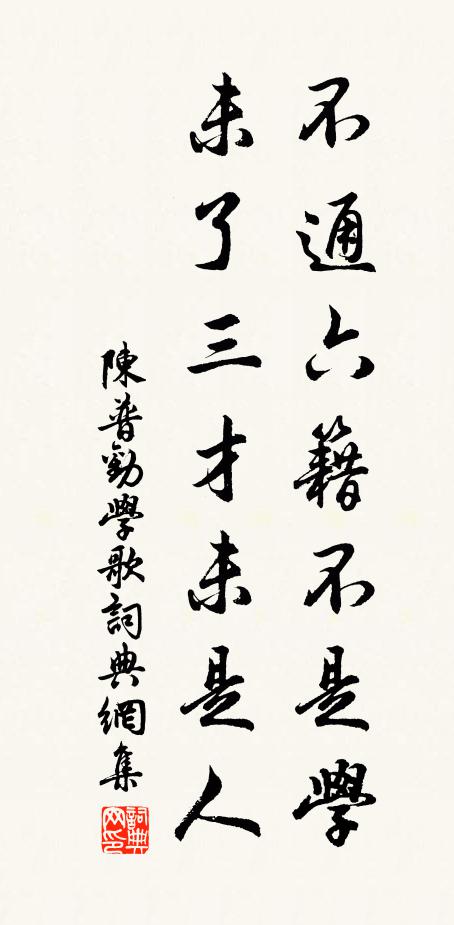 不通六籍不是學
未了三才未是人
陳普勸學歌詞典網集
詞典網印